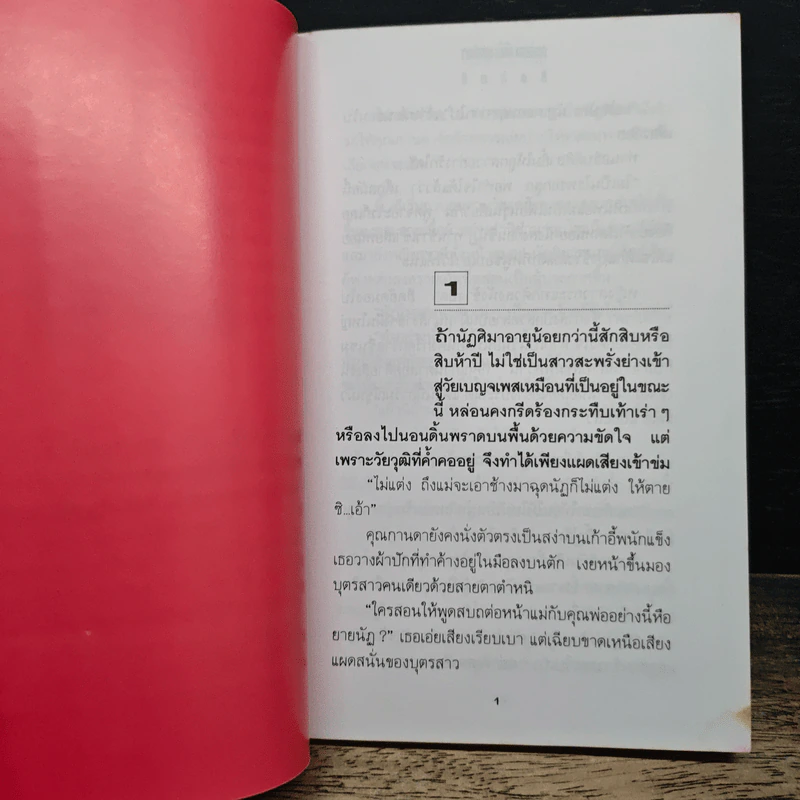 1
ถ้านัฏศิมาอายุน้อยกว่านี้สักสิบหรือ
สิบห้าปี ไม่ใช่เป็นสาวสะพรั่งย่างเข้า
สู่วัยเบญจเพสเหมือนที่เป็นอยู่ในขณะ
นี้ หล่อนคงกรีดร้องกระทืบเท้าเร่า ๆ
หรือลงไปนอนดิ้นพราดบนพื้นด้วยความขัดใจ แต่
เพราะวัยวุฒิที่ค้ำคออยู่ จึงทำได้เพียงแผดเสียงเข้าข่ม
“ไม่แต่ง ถึงแม่จะเอาช้างมาฉุดนัฏก็ไม่แต่ง ให้ตาย
ซิ...เอ้า”
คุณกานดายังคงนั่งตัวตรงเป็นสง่าบนเก้าอี้พนักแข็ง
เธอวางผ้าปักที่ทำค้างอยู่ในมือลงบนตัก เงยหน้าขึ้นมอง
บุตรสาวคนเดียวด้วยสายตาตำหนิ
“ใครสอนให้พูดสบถต่อหน้าแม่กับคุณพ่ออย่างนี้หือ
ยายนัฏ ?” เธอเอ่ยเสียงเรียบเบา แต่เฉียบขาดเหนือเสียง
แผดสนั่นของบุตรสาว
1